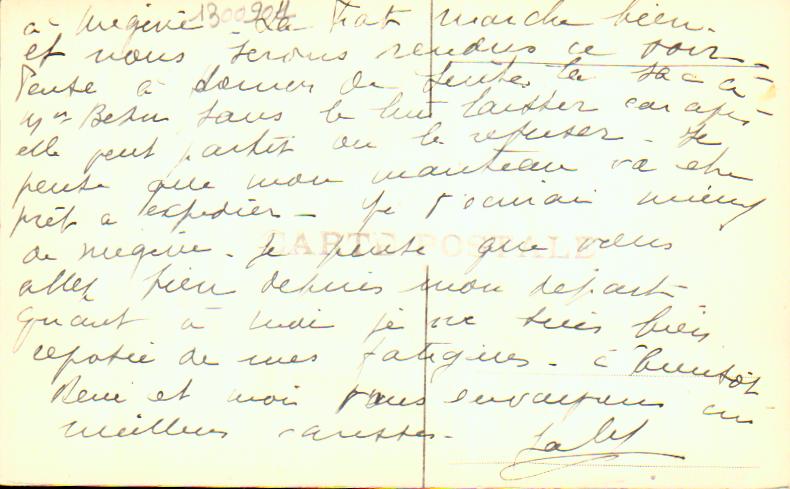 à Megève. La Fiat marche bien.
1300904
et nous serons rendus ce soir.
Pense à donner de suite le sac à
Mme sans le lui laisser car après
elle peut partir ou le refuser. Je
pense que mon manteau va être
prêt à expédier. Je t'ecrirai mieux
de Megève. Je pense que vous
CARTE POSTALE
allez bien depuis mon départ
Quant à moi je me suis bien
reposée de mes fatigues. à bientôt
René et moi vous envoyons nos
meilleurs caresses.